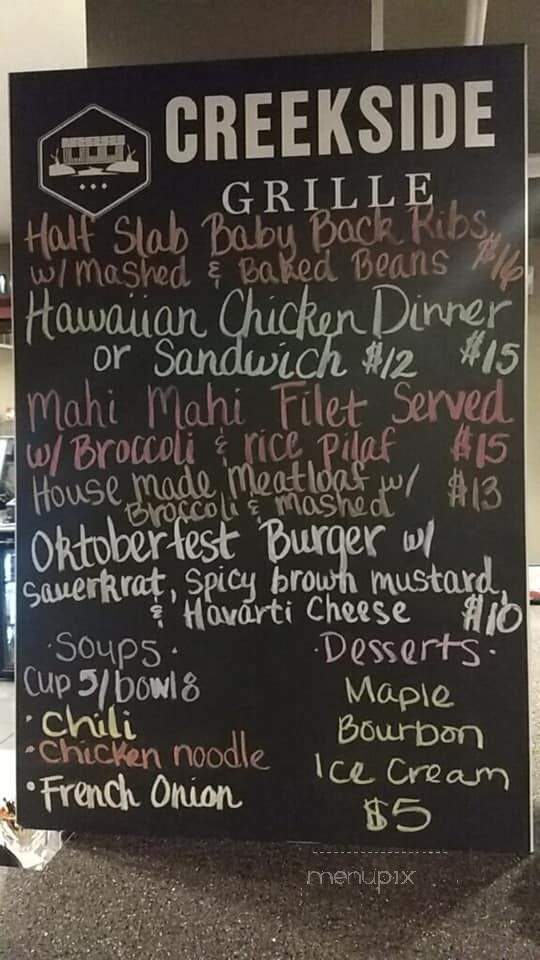 CREEKSIDE
GRILLE
Half Slab Baby Back Ribs
w/ Mashed & Baked Beans $16
Hawaiian Chicken Dinner
or Sandwich $12 $15
Mahi Mahi Filet Served
w/ Broccoli & rice Pilaf $15
House made Meatloaf w/ $13
Broccoli & mashed
Oktoberfest Burger w/
Sauerkrat, Spicy brown mustard,
& Havarti Cheese $10
·Soups·
Cup 5/bowl 8
·Chili
·Chicken noodle
·French Onion
·Desserts·
Maple
Bourbon
Ice Cream
$5
menupix